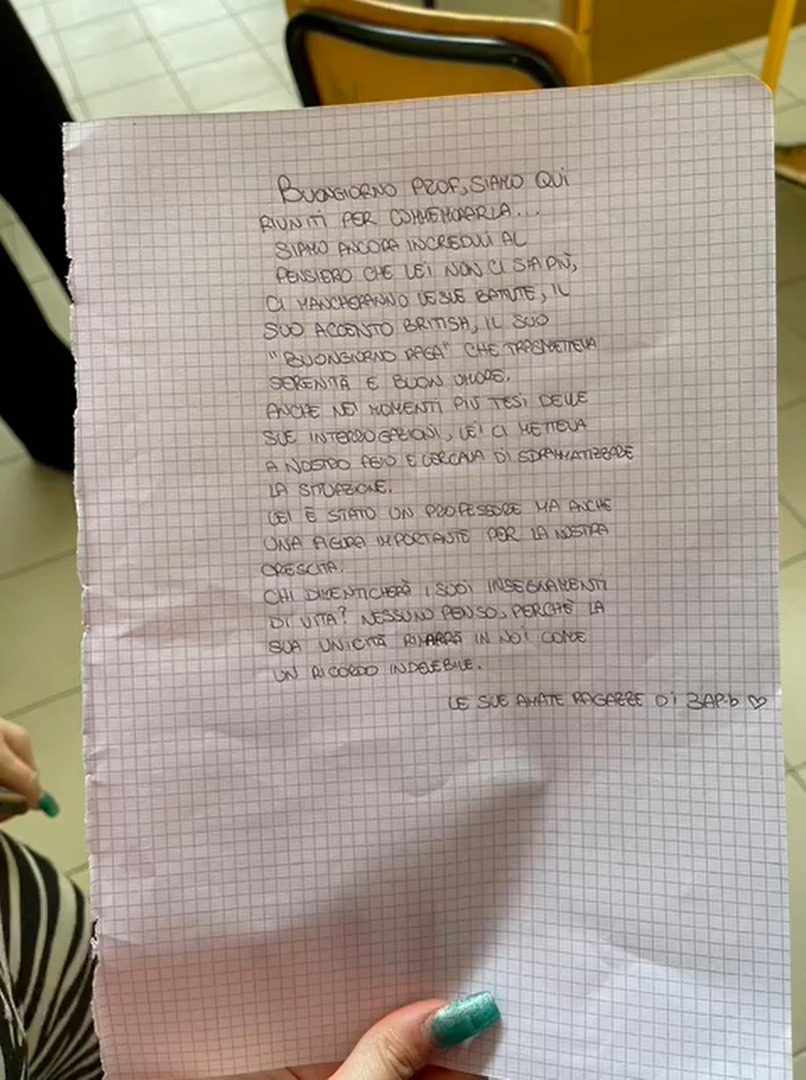 BUONGIORNO PROF, SIAMO QUI
RIUNITI PER COMMEMORARLA...
SIAMO ANCORA INCREDULI AL
PENSIERO CHE LEI NON CI SIA PIÙ,
CI MANCHERANNO LE SUE BATUTE, IL
SUO ACCENTO BRITISH, IL SUO
"BUONGIORNO RAGA" CHE TRASMETTEVA
SERENITÀ E BUON UMORE.
ANCHE NEI MOMENTI PIÙ TESI DELLE
SUE INTERROGAZIONI, LEI CI METTEVA
A NOSTRO AGIO E CERCAVA DI SDRAMMATIZZARE
LA SITUAZIONE.
LEI È STATO UN PROFESSORE MA ANCHE
UNA FIGURA IMPORTANTE PER LA NOSTRA
CRESCITA.
CHI DIMENTICHERÀ I SUOI INSEGNAMENTI
DI VITA? NESSUNO PENSO, PERCHÈ LA
SUA UNICITÀ RIMARRÀ IN NOI COME
UN RICORDO INDELEBILE.
LE SUE AMATE RAGAZZE DI 3AP.b ♡